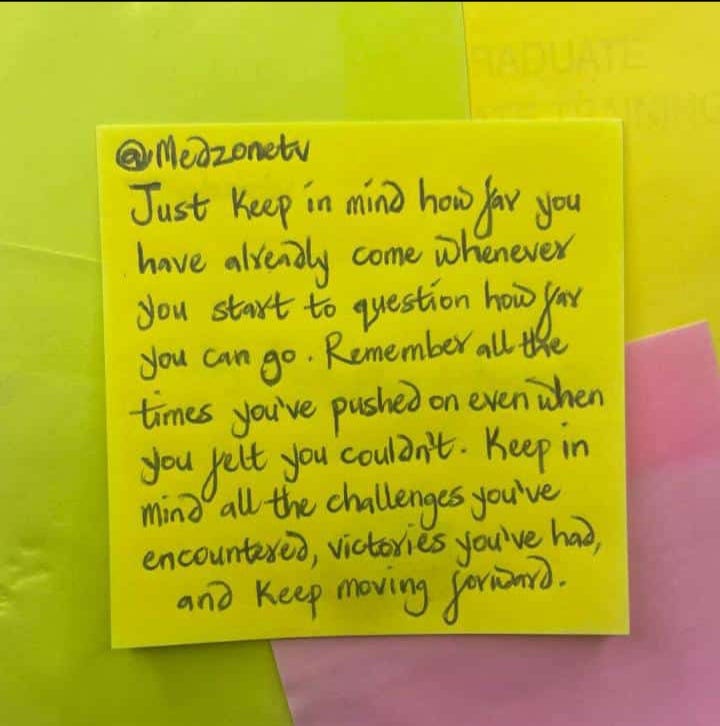 RADUATE
TRAINING
@Medzonetv
Just keep in mind how far you
have already come whenever
you start to question how far
you can go. Remember all the
times you've pushed on even when
you felt you couldn't. Keep in
mind all the challenges you've
encountered, victories you've had,
and keep moving forward.